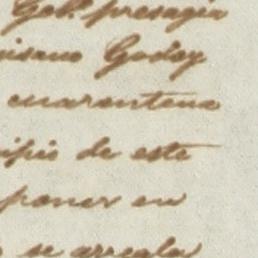 Gob. presagia
Godoy
cuarentena
de este
poner en
se arregla